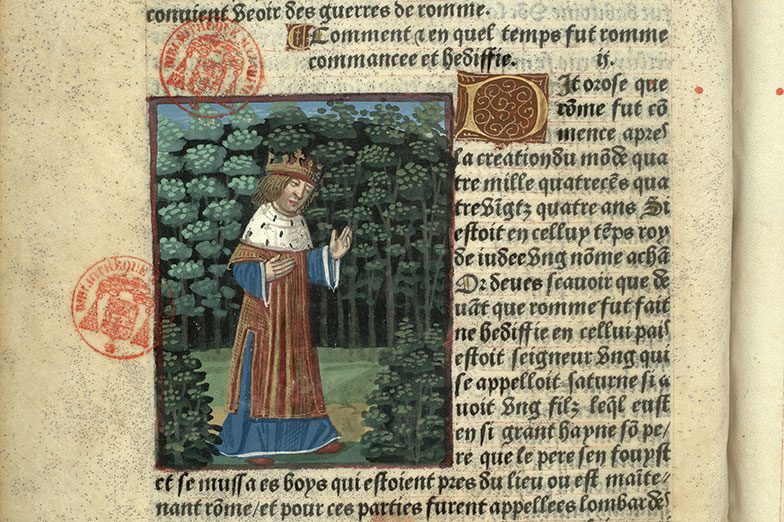 conuient veoir des guerres de romme.
Comment ⁊ en quel temps fut romme
commancee et hediffie. ij.
Dit orose que
rõme fut cõ
mence apres
la creation du mõde qua
tre mille quatrecẽs qua
tre vingtz quatre ans Si
estoit en celluy tẽps roy
de iudee vng nõme achã
Or deues scauoir que de
uãt que romme fut fait
ne hediffie en cellui pais
estoit seigneur vng qui
se appelloit saturne si a
uoit vng filz leq̃l eust
en si grant hayne sõ pe/
re que le pere sen fouyst
et se mussa es boys qui estoient pres du lieu ou est maĩte/
nant rõme/et pour ces parties furent appellees lombards
BIBLIOTHEQUE
BIBLIOTHEQUE